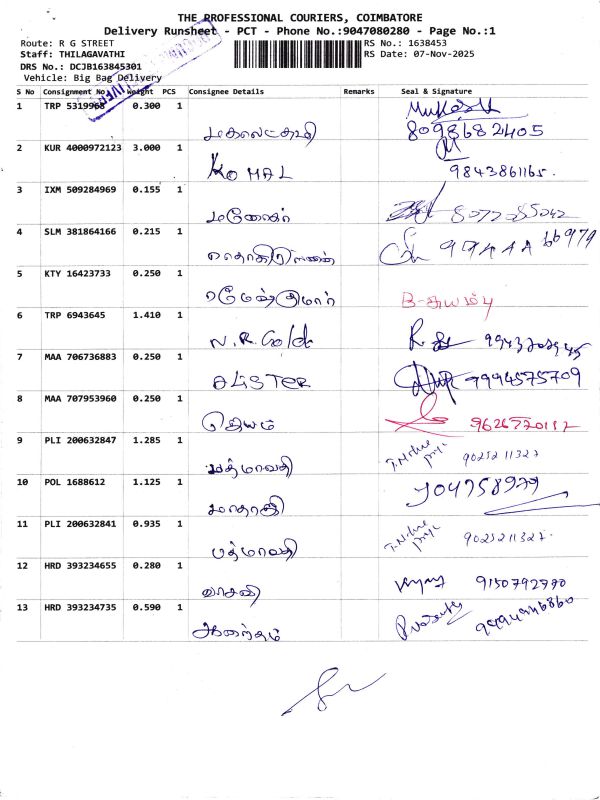 THE PROFESSIONAL COURIERS, COIMBATORE
Delivery Runsheet - PCT - Phone No.:9047080280 - Page No.:1
Route: R G STREET
Staff: THILAGAVATHI
DRS No.: DCJB163845301
Vehicle: Big Bag Delivery
RS No.: 1638453
RS Date: 07-Nov-2025
S No Consignment No Weight PCS Consignee Details Remarks Seal & Signature
1 TRP 5319968 0.300 1 மகாலட்சுமி Mukesh
8098682405
2 KUR 4000972123 3.000 1 KOMAL 9843861165.
3 IXM 509284969 0.155 1 மனோகர்
4 SLM 381864166 0.215 1
5 KTY 16423733 0.250 1 ரமேஷ்குமார்
6 TRP 6943645 1.410 1 N.R. Gold
7 MAA 706736883 0.250 1 ALISTER 9994575709
8 MAA 707953960 0.250 1 ஜெயம்
9 PLI 200632847 1.285 1 பத்மாவதி 9025211327
10 POL 1688612 1.125 1
11 PLI 200632841 0.935 1 பத்மாவதி 9025211327.
12 HRD 393234655 0.280 1 வாசவி 9150792770
13 HRD 393234735 0.590 1